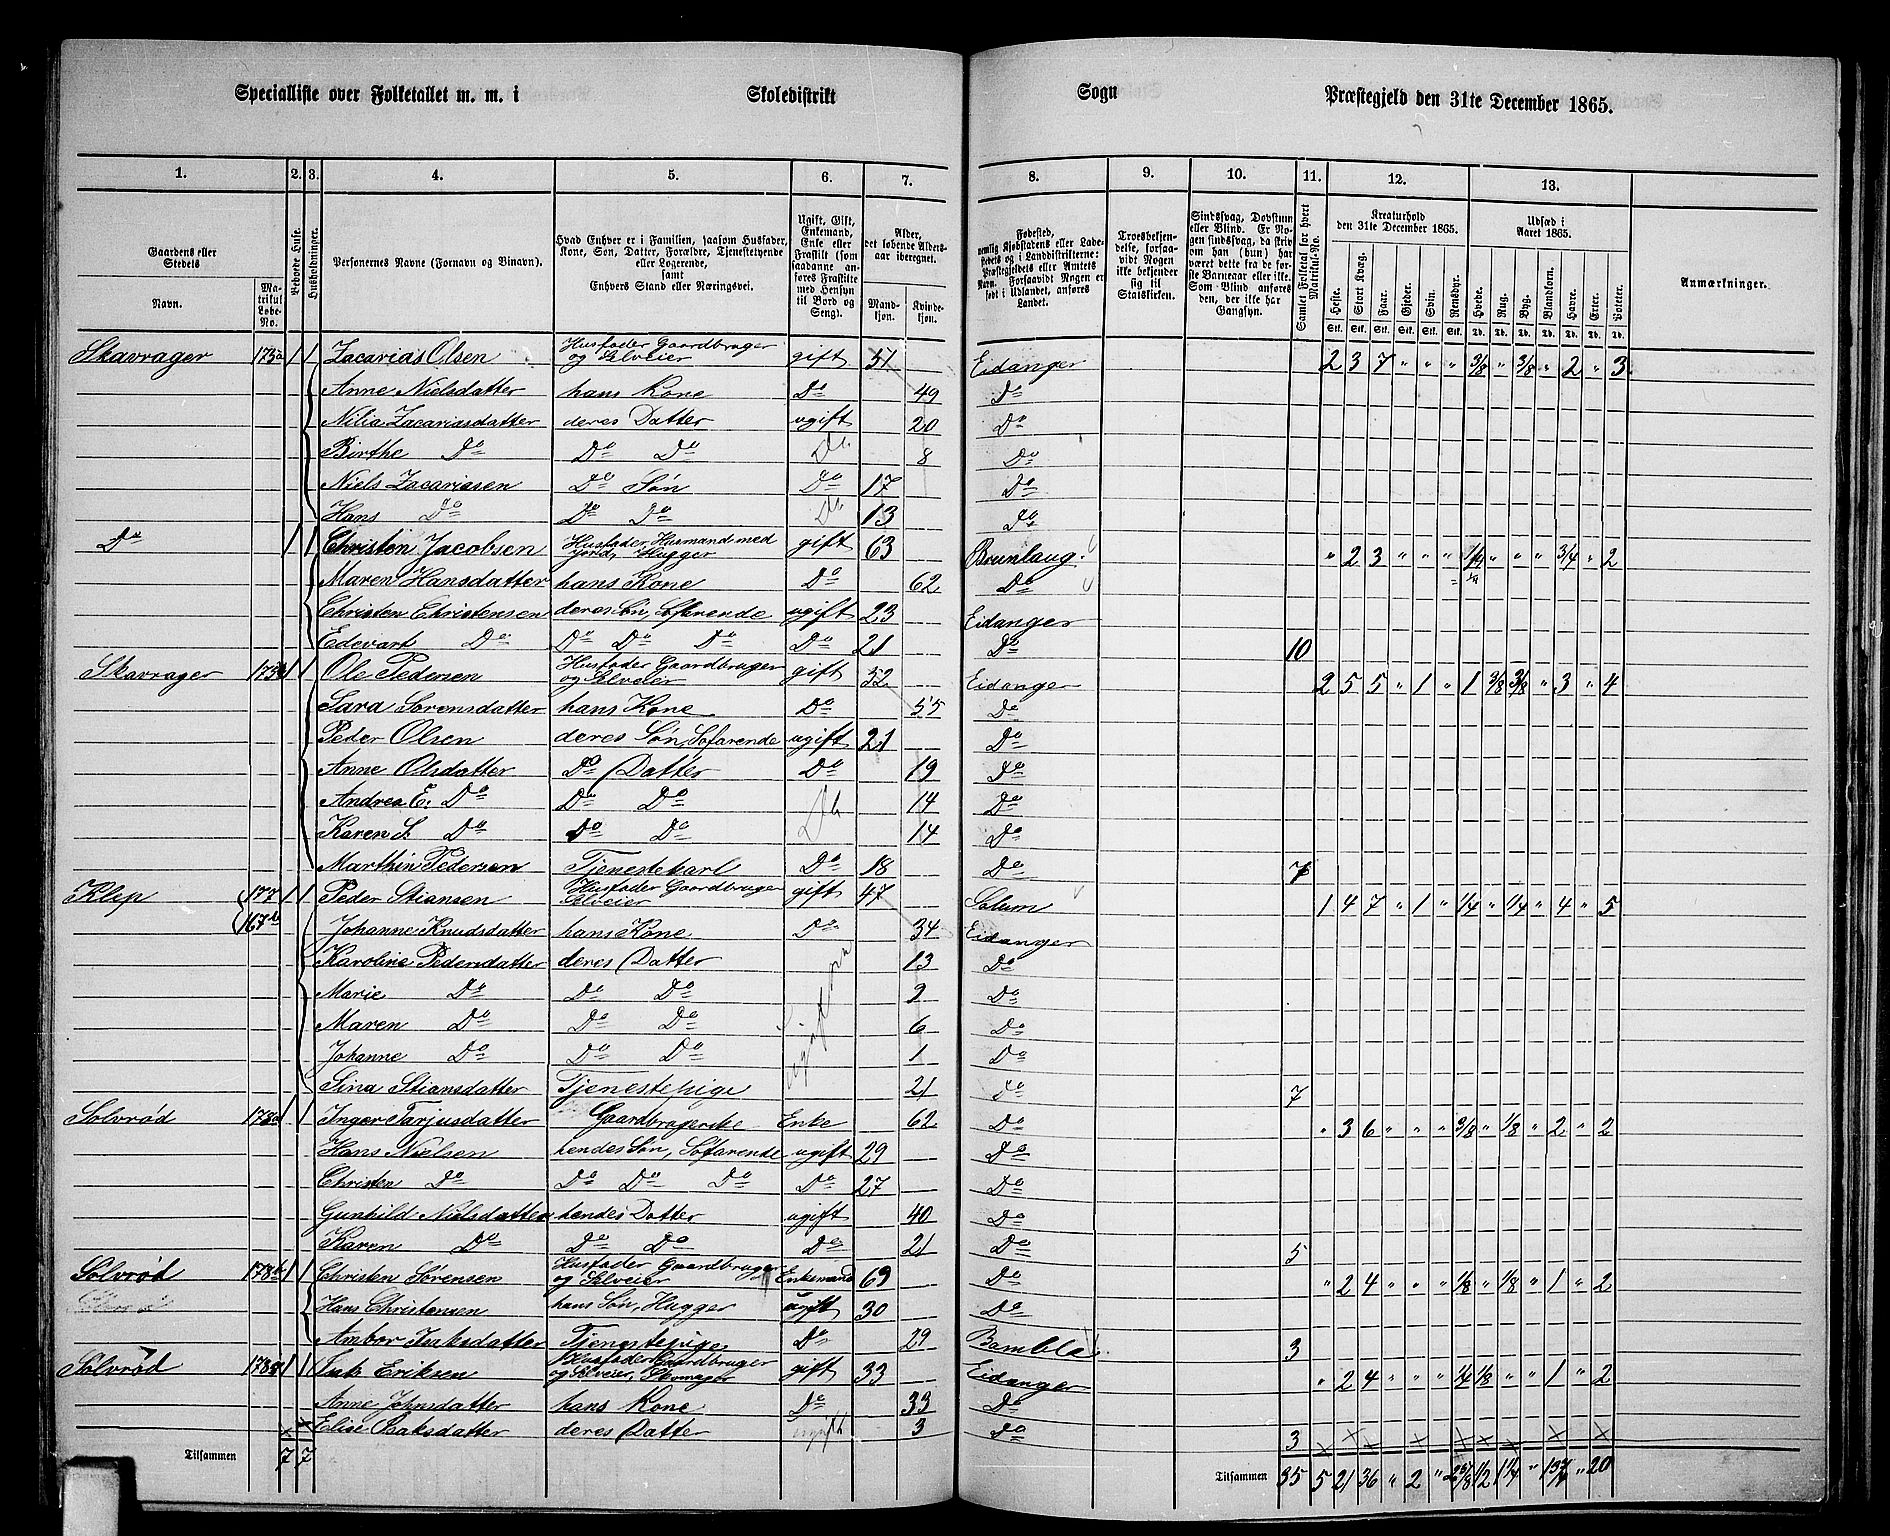 Specialliste over Folketallet m. m. i Skoledistrikt Sogn Præstegjeld den 31te December 1865.
1. 2. 3. 4. 5. 6. 7. 8. 9. 10. 11. 12. 13.
Gaardens eller Stedets
Navn.
Matrikul Løbe-No.
Beboede Huse.
Husholdninger.
Personernes Navne (Fornavn og Binavn).
Hvad Enhver er i Familien, saasom Husfader, Kone, Søn, Datter, Forældre, Tjenestetyende eller Logerende, samt Enhvers Stand eller Næringsvei.
Ugift, Gift, Enkemand, Enke eller Fraskilt (som saadanne anføres Fraskilte med Hensyn til Bord og Seng).
Alder, det løbende Aldersaar iberegnet.
Mandkjøn. Kvindekjøn.
Fødested, nemlig Kjøbstadens eller Ladestedets og i Landdistrikterne: Præstegjeldets eller Amtets Navn. Forsaavidt Nogen er født i Udlandet, anføres Landet.
Troesbekjendelse, forsaavidt Nogen ikke bekjender sig til Statskirken.
Sindssvag, Døvstum eller Blind. Er Nogen sindssvag, da skriv om han (hun) har været dette fra de første Barneaar eller ikke. Som Blind anføres den, der ikke har Gangsyn.
Samlet Folketal for hvert Matrikul-No.
Kreaturhold den 31te December 1865.
Heste. Stort Kvæg. Faar. Gjeder. Svin. Rensdyr.
Udsæd i Aaret 1865.
Hvede. Rug. Byg. Blandkorn. Havre. Erter. Poteter.
Anmærkninger.
Skavrager 173a 1 1 Zacarias Olsen Husfader Gaardbruger og Selveier gift 51 Eidanger 2 3 7 " " " 3/8 " 3/8 " 2 " 3
Anne Nielsdatter hans Kone Do 49 Do
Nilia Zacariasdatter deres Datter ugift 20 Do
Birthe Do Do Do Do 8 Do
Niels Zacariasen Do Søn Do 17 Do
Hans Do Do Do Do 13 Do
Do 1 1 Christen Jacobsen Husfader Husmand med Jord, Hugger gift 63 Brunlaug. " 2 3 " " " 1/4 " " " 3/4 " 2
Maren Hansdatter hans Kone Do 62 Do
Christen Christensen deres Søn, Søfarende ugift 23 Eidanger
Edevart Do Do Do Do Do 21 Do 10
Skavrager 173b 1 1 Ole Pedersen Husfader Gaardbruger og Selveier gift 52 Eidanger 2 5 5 " 1 " 1 3/8 3/8 " 3 " 4
Sara Sørensdatter hans Kone Do 55 Do
Peder Olsen deres Søn, Søfarende ugift 21 Do
Anne Olsdatter Do Datter Do 19 Do
Andrea E. Do Do Do Do 14 Do
Karen S. Do Do Do 14 Do
Marthin Pedersen Tjenestekarl Do 18 Do 7
Klep 177 1 1 Peder Stiansen Husfader Gaardbruger Selveier gift 47 Solum 1 4 7 " 1 " 1/4 " 1/4 " 4 " 5
167b Johanne Knudsdatter hans Kone Do 34 Eidanger
Karoline Pedersdatter deres Datter 13 Do
Marie Do Do Do 9 Do
Maren Do Do Do 6 Do
Johanne Do Do Do 1 Do
Sina Stiansdatter Tjenestepige 21 Do 7
Solvrød 178a 1 1 Inger Tarjusdatter Gaardbrugerske Enke 62 Do " 3 6 " " " 3/8 " 1/8 " 2 " 2
Hans Nielsen hendes Søn, Søfarende ugift 29 Do
Christen Do Do Do Do Do 27 Do
Gunhild Nielsdatter hendes Datter ugift 40 Do
Karen Do Do Do Do 21 Do 5
Solvrød 178b 1 1 Christen Sørensen Husfader Gaardbruger og Selveier Enkemand 69 Do " 2 4 " " " 1/8 " 1/8 " 1 " 2
Hans Christensen hans Søn, Hugger ugift 30 Do
Ambor Isaksdatter Tjenestepige Do 29 Bamble 3
Solvrød 178c 1 1 Isak Eriksen Husfader Gaardbruger og Selveier, Skomager gift 33 Eidanger " 2 4 " " " 1/4 1/8 " " 1 " 2
Anne Johnsdatter hans Kone Do 33 Do
Elise Isaksdatter deres Datter ugift 3 Do 3
Tilsammen 7 7 Tilsammen 35 5 21 36 " 2 " 2 5/8 1/2 1 1/4 " 13 3/4 " 20